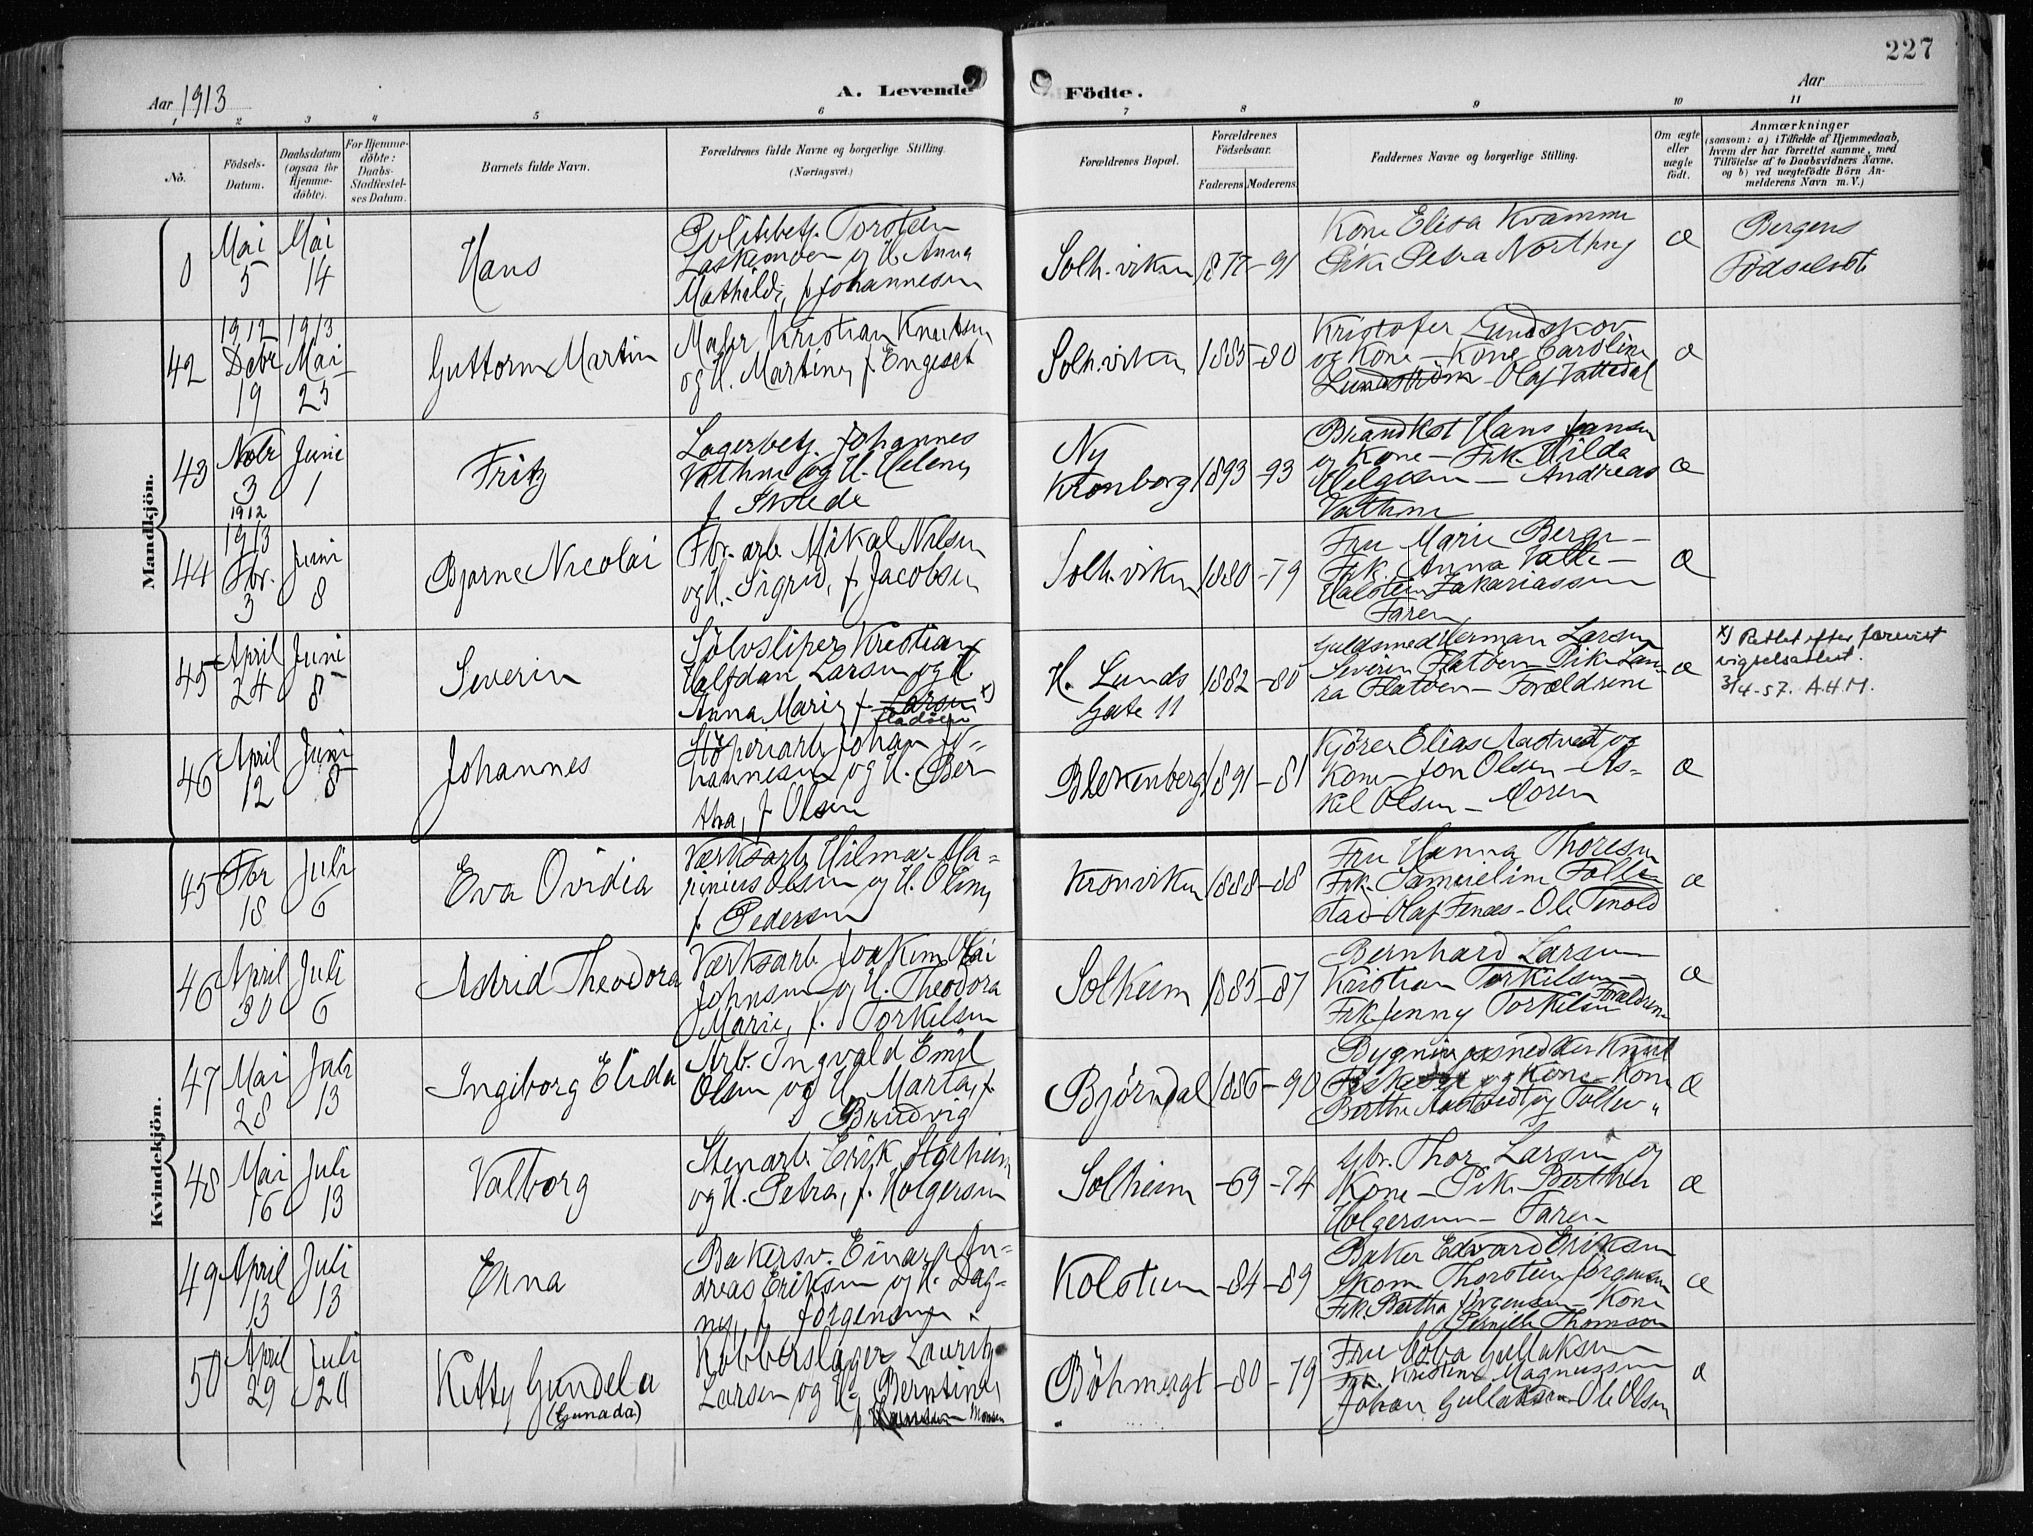 227
Aar 1913
A. Levende Fødte.
Aar
1 2 3 4 5 6 7 8 9 10 11
No.
Fødsels-Datum.
Daabsdatum (ogsaa for Hjemme-døbte).
For Hjemme-døbte: Daabs-Stadfæstelses Datum.
Barnets fulde Navn.
Forældrenes fulde Navne og borgerlige Stilling. (Næringsvei.)
Forældrenes Bopæl.
Forældrenes Fødselsaar.
Faderens Moderens.
Faddernes Navne og borgerlige Stilling.
Om ægte eller uægte født.
Anmærkninger
(saasom: a) i Tilfælde af Hjemmedaab, hvem der har forrettet samme, med Tilføielse af to Daabsvidners Navne, og b) ved uægtefødte Børn Anmelderens Navn m. V.)
Mandkjön.
0 Mai 5 Mai 14 Hans
Politibetj. Torsten
og H. Anna
Mathilde, f Johannesen
Solh.viken 1877 -91
Kone Elisa Kvamme
Pike Petra
æ
Bergens
Fødselsst
42 1912 Debr 19 1913 Mai 25 Guttorm Martin
Maler Kristian Knutsen
og H. Martine, f Engeset
Solh.viken 1885 -80
Kristofer Lundskov
og Kone - Kone Caroline
Lundström - Olaf Vattedal
æ
43 Nobr 3 1912 Juni 1 Fritz
Lagerbetj. Johannes
Vathne og H. Helene,
f
Ny
Kronborg 1893 -93
Brandkst Hans Jansen
og Kone - Frk. Hilda
Helgesen - Andreas
Vathne
æ
44 1913 Fbr. 3 Juni 8 Bjarne Nicolai
Fbr. arb. Mikal Nilsen
og H. Sigrid, f. Jacobsen
Solh.viken 1880 -79
Fru Marie Berge -
Frk. Anna Valle -
Halstein Zakariassen
Faren
æ
45 April 24 Juni 8 Severin
Sølvsliper Kristian
Halfdan Larsen og H.
Anna Marie, f. Larsen x)
Fladöen
H. Lunds
Gate 11 1882 -80
Guldsmed Herman Larsen
Severin Flatöen - Pike Lau-
ra Flatöen - Forældrene
æ
x) Rettet efter forevist
vigselsattest.
3/4-57. A.H.M.
46 April 12 Juni 8 Johannes
Støperiarb Johan Jo-
hannesen og H. Ber-
tha, f. Olsen
Blekenberg 1891 -81
Kjører Elias Aastvedt og
Kone - Jon Olsen - As-
kil Olsen - Moren
æ
Kvindekjön.
45 Fbr 18 Juli 6 Eva Ovidia
Værksarb. Hilmar Ma-
rinius Olsen og H. Oline,
f. Pedersen
Kronviken 1888 -88
Fru Hanna Thoresen
Frk. Samueline Follin-
stad - Olaf Fenæs - Ole Tenold
æ
46 April 30 Juli 6 Astrid Theodora
Værksarb Joakim
Johnsen og H. Theodora
Marie, f. Torkilsen
Solheim 1885 -87
Bernhard Larsen
Kristian Torkilsen -
Frk Jenny Torkilsen Forældrene
æ
47 Mai 28 Juli 13 Ingiborg Elida
Arb. Ingvald Emil
Olsen og H. Marta, f.
Brudvig
Bjørndal 1886 -90
Bygningssnedker Knut
og Kone - Kone
Berthe Aastvedt og
æ
48 Mai 16 Juli 13 Valborg
Stenarb. Erik Storheim
og H. Petra, f. Holgersen
Solheim -69 -74
Gbr. Thor Larsen og
Kone - Pike Berthe
Holgersen - Faren
æ
49 April 13 Juli 13 Erna
Bakersv. Einar An-
dreas Eriksen og H. Dag-
ny, f. Jörgensen
Kolstien -84 -89
Baker Edvard Eriksen
Skom. Thorstein Jörgensen
Frk. Bertha Jörgensen - Kone
Pernille Thomson
æ
50 April 29 Juli 20 Kitty Gundela
(Gunada)
Kobberslager Lauritz
Larsen og H. Berntine,
f. Monsen
Böhmergt -80 -79
Fru Gullaksen
Frk. Kristine Magnussen
Johan Gullaksen - Ole Olsen
æ